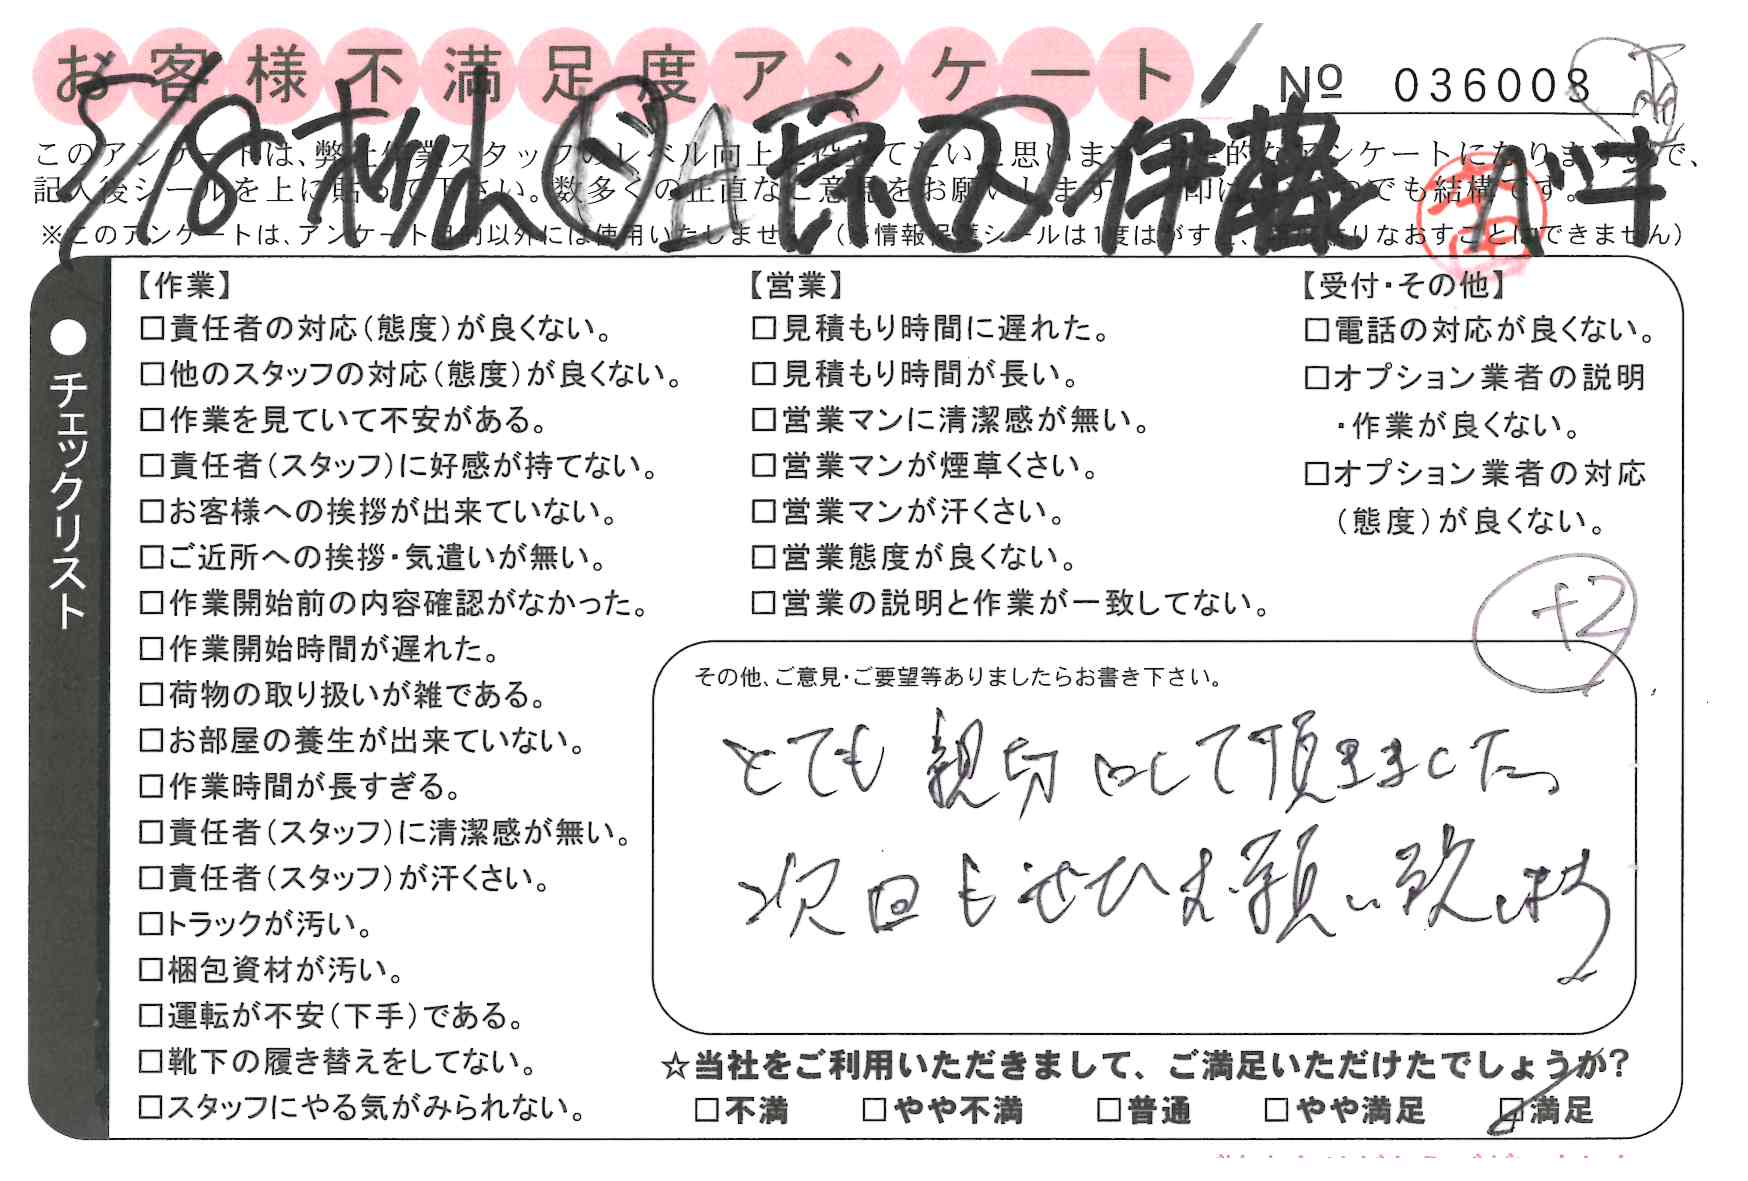 お客様不満足度アンケート
№ 036003
5/18 柳山 原田 伊藤
このアンケートは、弊社作業スタッフのレベル向上に役立てたいと思います。
記入後シールを上に貼って下さい。数多くの正直なご意見をお願いします。 でも結構です。
※このアンケートは、アンケート目的以外には使用いたしません。(※情報保護シールは1度はがすと、 はりなおすことはできません)
●チェックリスト
【作業】
□責任者の対応(態度)が良くない。
□他のスタッフの対応(態度)が良くない。
□作業を見ていて不安がある。
□責任者(スタッフ)に好感が持てない。
□お客様への挨拶が出来ていない。
□ご近所への挨拶・気遣いが無い。
□作業開始前の内容確認がなかった。
□作業開始時間が遅れた。
□荷物の取り扱いが雑である。
□お部屋の養生が出来ていない。
□作業時間が長すぎる。
□責任者(スタッフ)に清潔感が無い。
□責任者(スタッフ)が汗くさい。
□トラックが汚い。
□梱包資材が汚い。
□運転が不安(下手)である。
□靴下の履き替えをしてない。
□スタッフにやる気がみられない。
【営業】
□見積もり時間に遅れた。
□見積もり時間が長い。
□営業マンに清潔感が無い。
□営業マンが煙草くさい。
□営業マンが汗くさい。
□営業態度が良くない。
□営業の説明と作業が一致してない。
【受付・その他】
□電話の対応が良くない。
□オプション業者の説明
・作業が良くない。
□オプション業者の対応
(態度)が良くない。
+2
その他、ご意見・ご要望等ありましたらお書き下さい。
とても親切にして頂きました。
次回もぜひお願い致します
☆当社をご利用いただきまして、ご満足いただけたでしょうか?
□不満 □やや不満 □普通 □やや満足 □満足